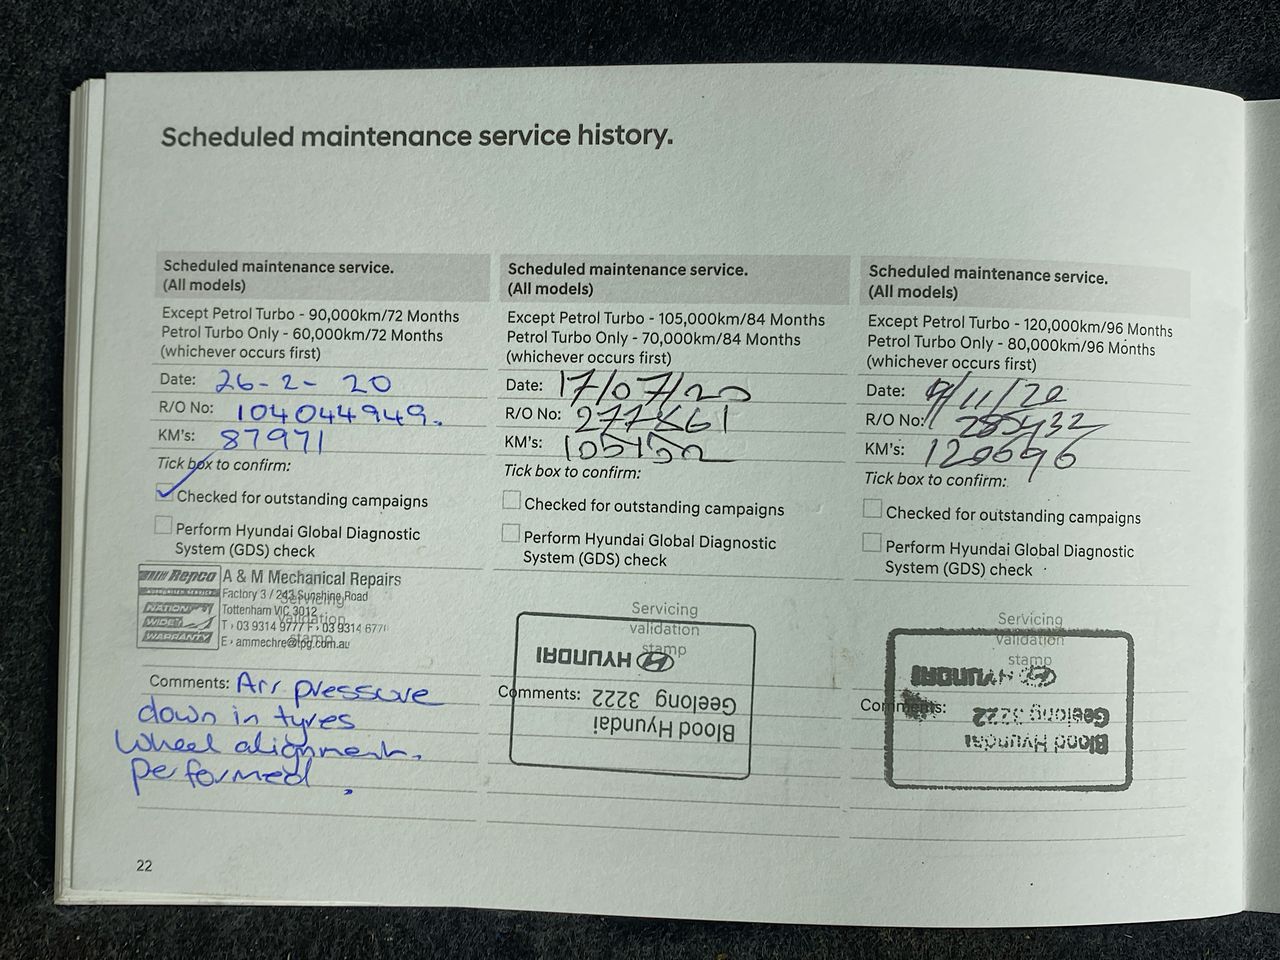 Scheduled maintenance service history.
Scheduled maintenance service.
(All models)
Except Petrol Turbo - 90,000km/72 Months
Petrol Turbo Only - 60,000km/72 Months
(whichever occurs first)
Date: 26-2-20
R/O No: 104044949.
KM's: 87971
Tick box to confirm:
Checked for outstanding campaigns
Perform Hyundai Global Diagnostic
System (GDS) check
Servicing
validation
stamp
Repco
AUTHORISED SERVICE
NATION
WIDE
WARRANTY
A & M Mechanical Repairs
Factory 3 / 243 Sunshine Road
Tottenham VIC 3012
T • 03 9314 9777 F • 03 9314 677
E • ammechre@tpg.com.au
Comments: Air pressure
down in tyres
Wheel alignment.
performed.
Scheduled maintenance service.
(All models)
Except Petrol Turbo - 105,000km/84 Months
Petrol Turbo Only - 70,000km/84 Months
(whichever occurs first)
Date: 17/07/20
R/O No:
KM's:
Tick box to confirm:
Checked for outstanding campaigns
Perform Hyundai Global Diagnostic
System (GDS) check
Servicing
validation
stamp
Comments:
Blood Hyundai
Geelong 3222
HYUNDAI
Scheduled maintenance service.
(All models)
Except Petrol Turbo - 120,000km/96 Months
Petrol Turbo Only - 80,000km/96 Months
(whichever occurs first)
Date: 9/11/20
R/O No:
KM's: 120696
Tick box to confirm:
Checked for outstanding campaigns
Perform Hyundai Global Diagnostic
System (GDS) check
Servicing
validation
stamp
Comments:
Blood Hyundai
Geelong 3222
HYUNDAI
22